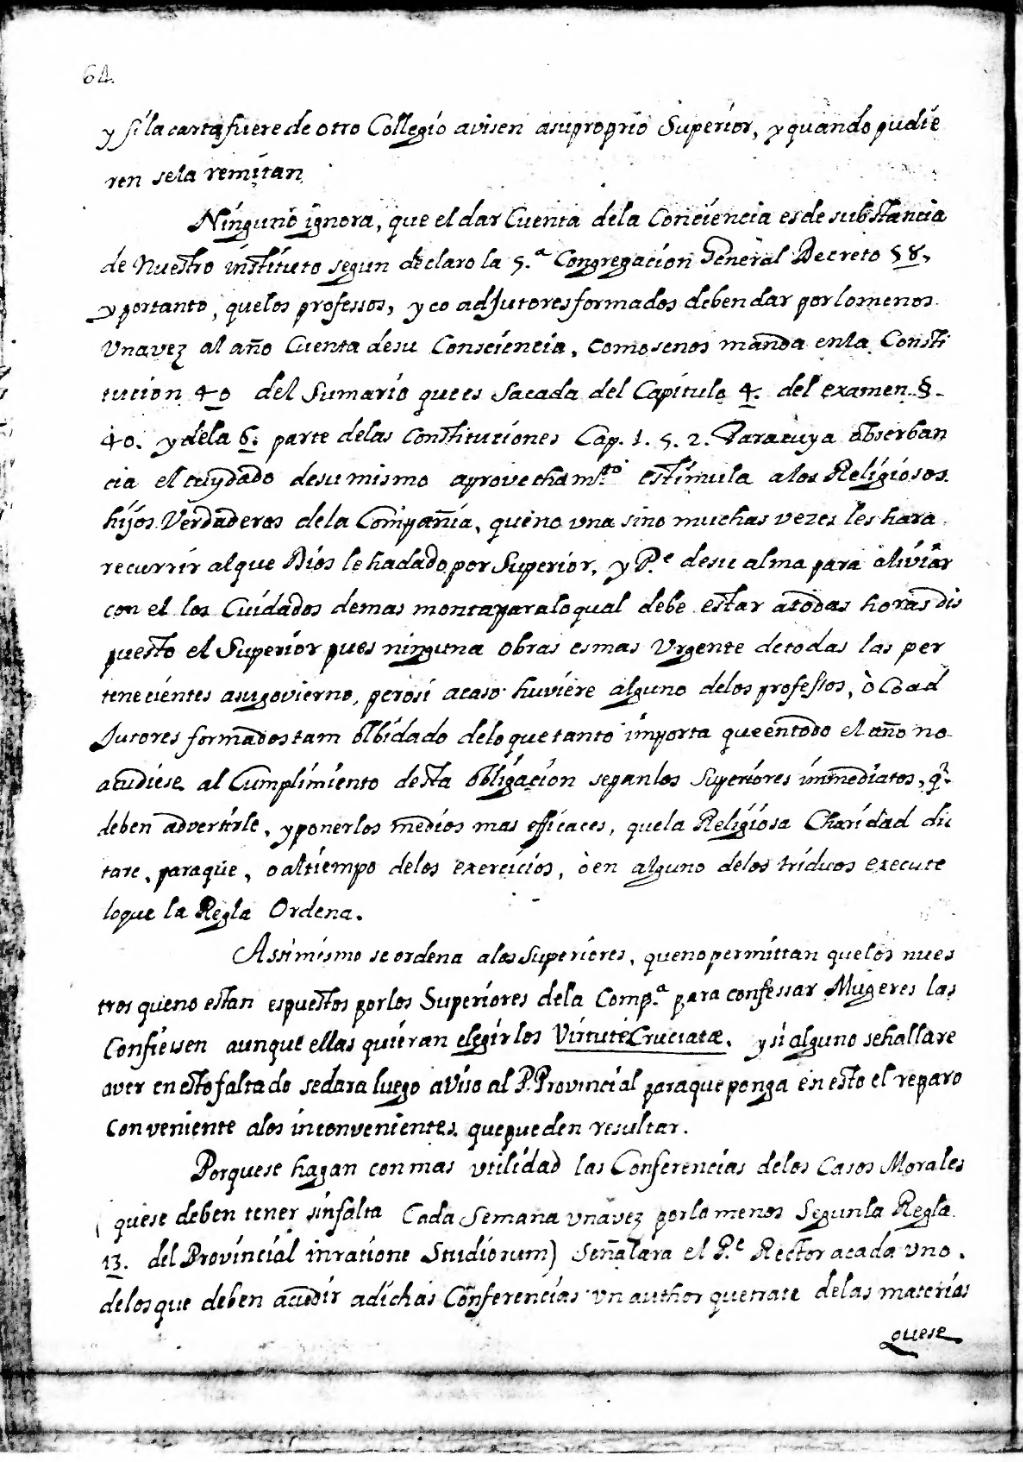 64.
y si la carta fuere de otro Collegio avisen asuproprio Superior, y quando pudie
ren sela remitan
Ninguno ignora, que el dar Cuenta dela Conciencia es de substancia
de Nuestro instituto segun declaro la 5.ª Congregacion General Decreto 58,
y portanto, quelos professos, y co adJutores formados deben dar porlomenos
Vnavez al año Cuenta desu Consciencia, como senos manda enla Consti
tucion 40 del Sumario quees Sacada del Capitulo 4. del examen §.
40. y dela 6. parte delas Constituciones Cap. 1. §. 2. Paracuya obserban
cia el cuydado desu mismo aprovecham.to estimula alos Religiosos.
hijos Verdaderos dela Compañia, queno vna sino muchas vezes les hara
recurrir alque Dios le hadado por Superior, y P.e desu alma para aliviar
con el los Cuidados demas monta paraloqual debe estar atodas horas dis
puesto el Superior pues ninguna obras esmas Vrgente detodas las per
tenecientes asugovierno, perosi acaso huviere alguno delos professos, ò Coad
Jutores formados tam olbidado delo quetanto importa queentodo el año no
acudiese al Cumplimiento desta obligacion sepanlos Superiores inmediatos, q.
deben advertirle, y ponerlos medios mas efficaces, quela Religiosa Charidad dic
tare, paraque, o altiempo delos exercicios, ò en alguno delos triduos execute
loque la Regla Ordena.
Assimismo se ordena alos Superiores, queno permittan quelos nues
tros queno estan espuestos porlos Superiores dela Comp.ª para confessar Mugeres las
Confiessen aunque ellas quieran elegirlos Virtute Cruciatæ. y si alguno sehallare
aver en esto faltado sedara luego aviso al P. Provincial paraque ponga en esto el reparo
Conveniente alos inconvenientes quepueden resultar.
Porquese hagan con mas vtilidad las Conferencias delos Casos Morales
( quese deben tener sin falta Cada Semana vnavez porlo menos Segunla Regla
13. del Provincial in ratione Studiorum) Señalara el P.e Rector acada vno.
delos que deben acudir adichas Conferencias vn author quetrate delas materias
quese